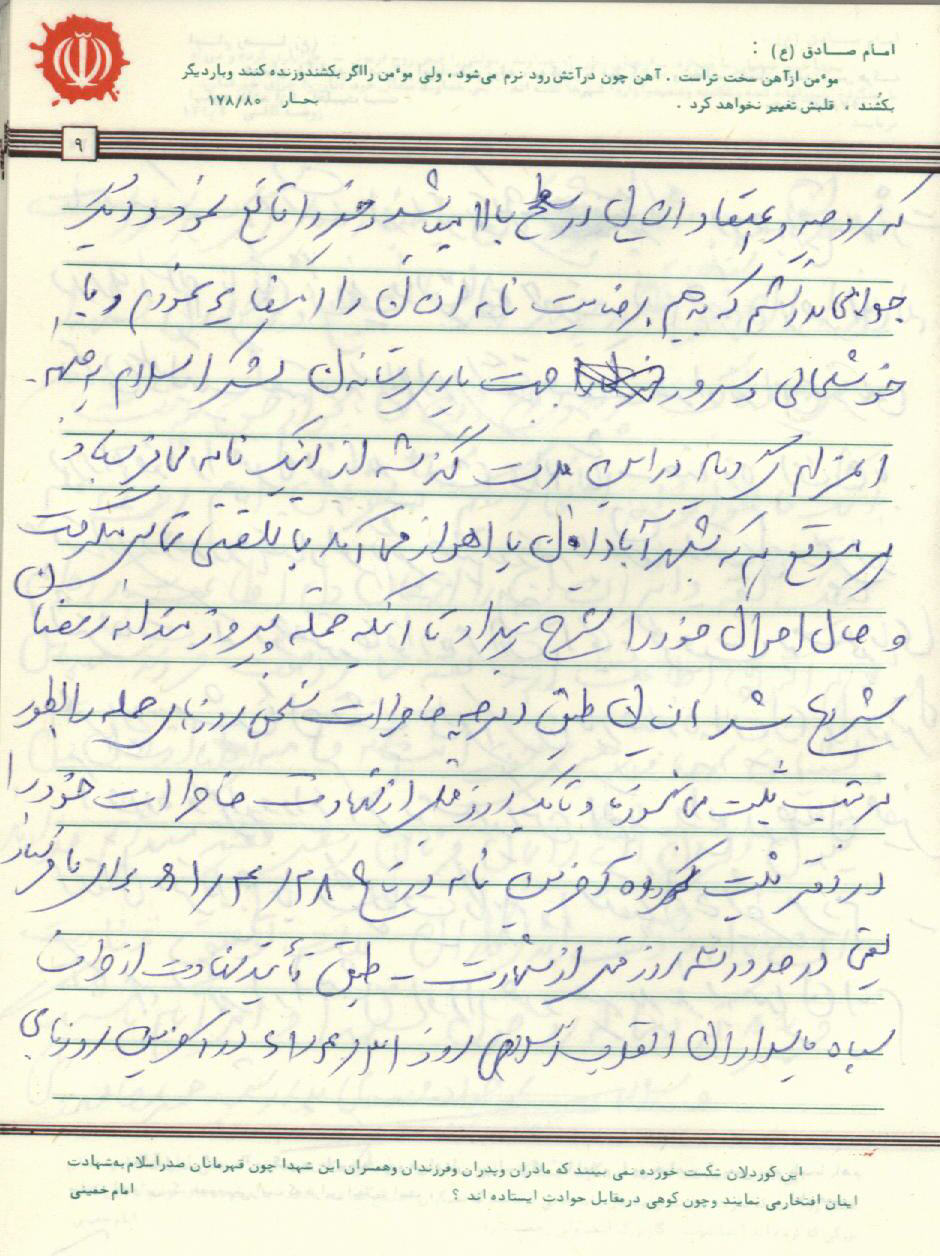 امام صادق (ع) :
موءمن ازآهن سخت تراست . آهن چون درآتش رود نرم می‌شود ، ولی موءمن رااگر بکشندوزنده کنند وباردیگر
بکُشند ، قلبش تغییر نخواهد کرد .
بحار ۱۷۸/۸۰
۹
که روحیه و اعتقاد ایشان در سطح بالا میباشد و خود را قانع نمود و دیگر
جوابی نداشتم که بدهم رضایت نامه ایشان را امضاء نمودم و با
خوشحالی و سرور جهت یاری رساندن لشکر اسلام به جبهه
اعزام گردید در این مدت گذشته از اینکه نامه میفرستاد
هر موقع هم که بشهر آبادان یا اهواز می آمد با تلفنی تماس میگرفت
و حال احوال خود را شرح میداد تا اینکه حمله پیروزمندانه رمضان
شروع شد ایشان طبق دفترچه خاطرات شخصی روزهای حمله را بطور
مرتب ثبت می نمودند و تا یک روز قبل از شهادت خاطرات خود را
در دفتر ثبت کرده و آخرین نامه در تاریخ ۶۱/۴/۲۸ برای ما فرستاد
یعنی در حدود سه روز قبل از شهادت - طبق تأیید شهادت از طرف
سپاه پاسداران انقلاب اسلامی روز ۶۱/۴/۳۱ در آخرین روزهای
این کوردلان شکست خورده نمی بینند که مادران وپدران وفرزندان وهمسران این شهدا چون قهرمانان صدراسلام به‌شهادت
اینان افتخارمی نمایند وچون کوهی درمقابل حوادث ایستاده اند ؟
امام خمینی